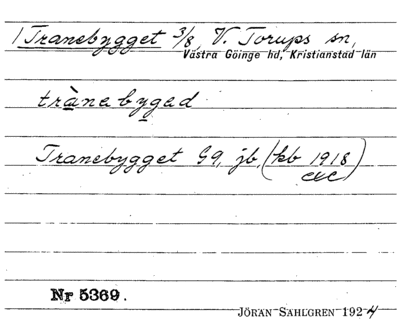 1 Tranebygget 3/8, V. Torups sn,
Västra Göinge hd, Kristianstad län
trànebyged
Tranebygget G9, jb, (kb 1918)
Nr 5369.
JÖRAN SAHLGREN 1924